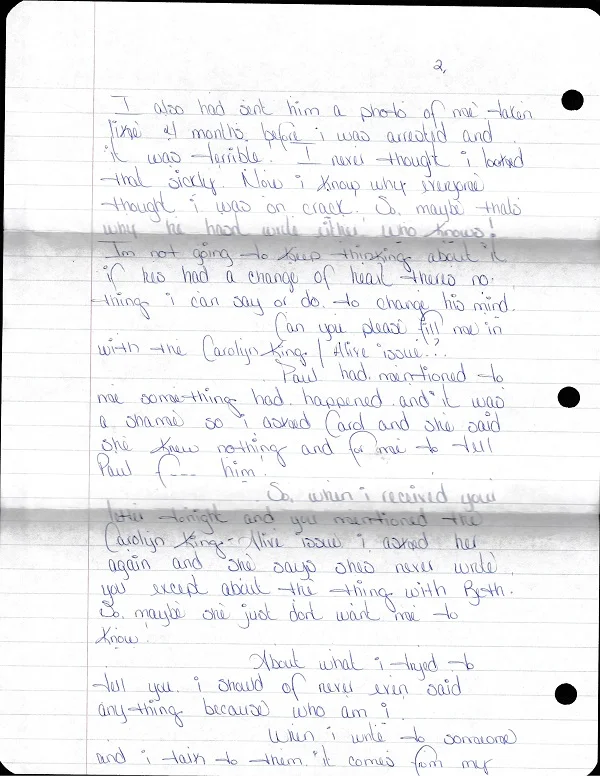 2,
I also had sent him a photo of me taken
like 4 months before i was arrested and
it was terrible. I never thought i looked
that sickly. Now i know why everyone
thought i was on crack. So, maybe thats
why he hasnt wrote either, who knows!
I'm not going to keep thinking about it
if hes had a change of heart theres no-
thing i can say or do to change his mind.
Can you please fill me in
with the Carolyn King / Alive issue...?
Paul had mentioned to
me something had happened and it was
a shame so i asked Carol and she said
she knew nothing and for me to tell
Paul F--- him!
So, when i received your
letter tonight and you mentioned the
Carolyn King-Alive issue i asked her
again and she says shes never wrote
you except about the thing with Beth.
So, maybe she just dont want me to
know!
About what i tryed to
tell you. i should of never even said
anything because who am i.
When i write to someone
and i talk to them it comes from my